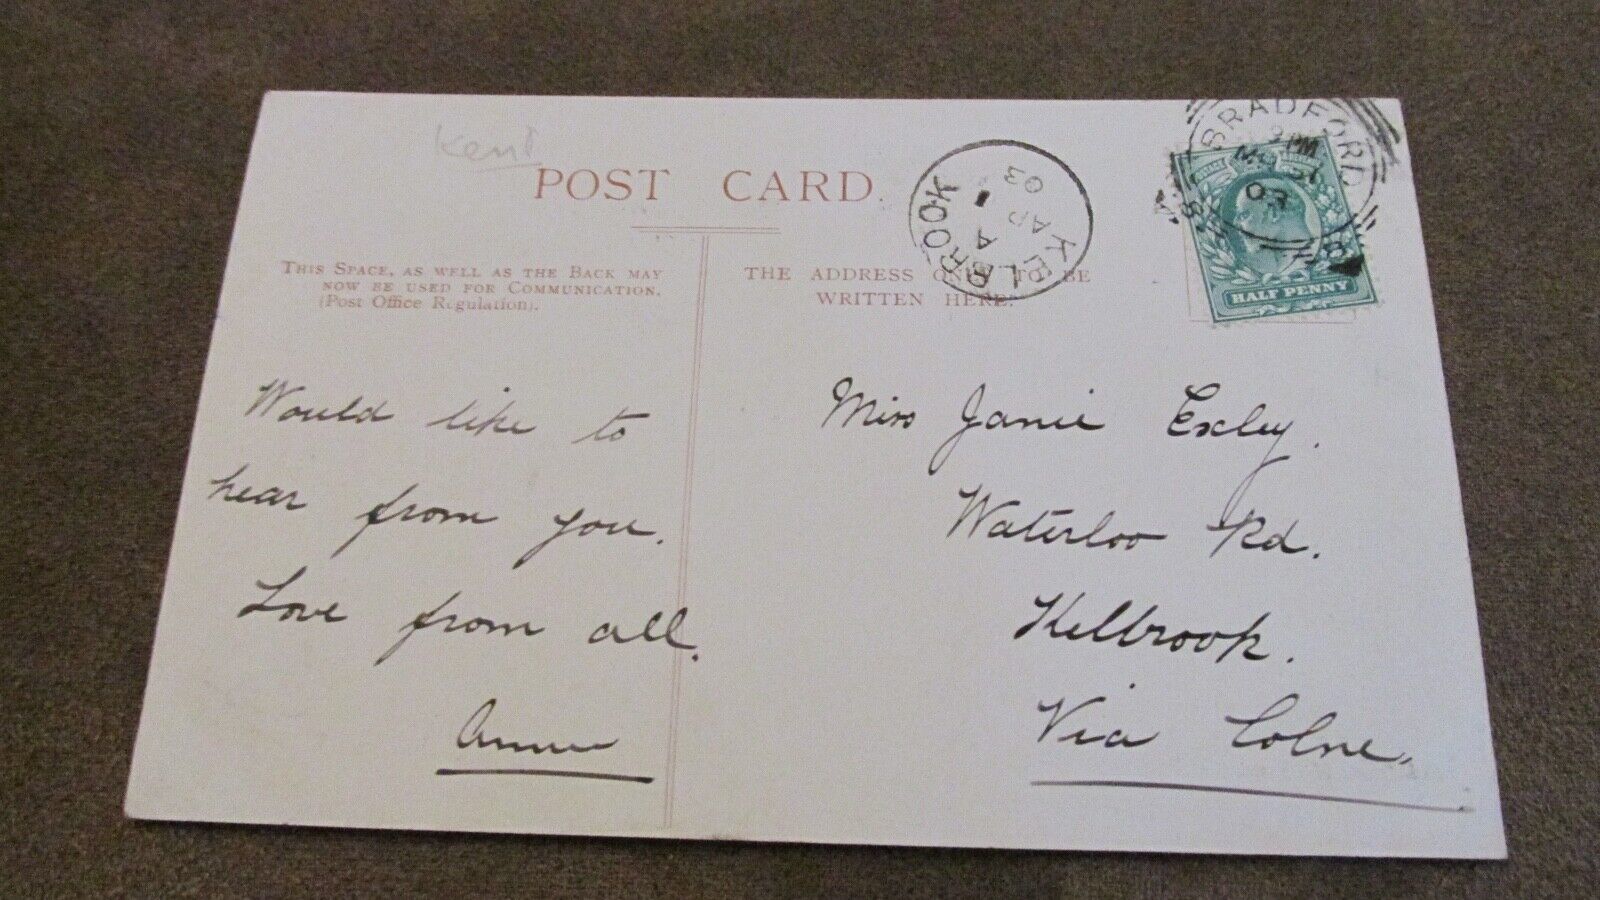 Kent
POST CARD.
THIS SPACE, AS WELL AS THE BACK MAY
NOW BE USED FOR COMMUNICATION.
(Post Office Regulation).
THE ADDRESS ONLY TO BE
WRITTEN HERE.
KELBROOK
A
AP 1
03
BRADFORD
PM
03
HALF PENNY
Would like to
hear from you.
Love from all.
Annie
Miss Janie Exley.
Waterloo Rd.
Kelbrook.
Via Colne.